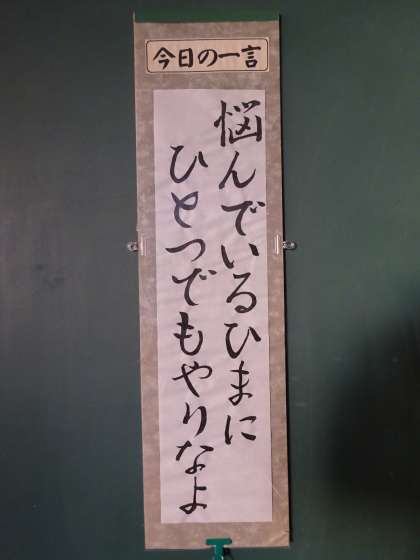 今日の一言
悩んでいるひまに
ひとつでもやりなよ